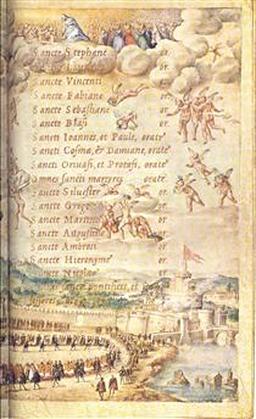 Sancte Stephane or.
Sancte or.
Sancte Vincenti or.
Sancte Fabiane or.
Sancte Sebastiane or.
Sancte Blasi or.
Sancti Ioannes, et Paule, orate
Sancti Cosma, & Damiane, orate
Sancti Geruasi, et Protasi, orate
Omnes sancti martyres orate
Sancte Siluester or.
Sancte Grego or.
Sancte Martine or.
Sancte Augustine or.
Sancte Ambrosi or.
Sancte Hieronyme or.
Sancte Nicolae or.
sancti pontifices, et